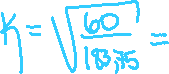 K = √(60/183,75) =